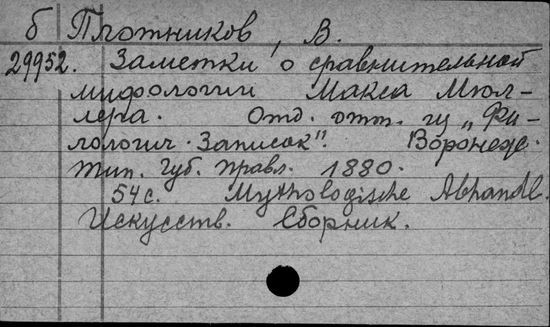 б Плотников, В.
29952. Заметки о сравнительной
мифологии Макса Мюл-
лера. Отд. отт. из „Фи-
лологич. Записок". Воронеж.
Тип. Губ. правл. 1880.
54 с. Mythologische Abhandl.
Искусств. Сборник.